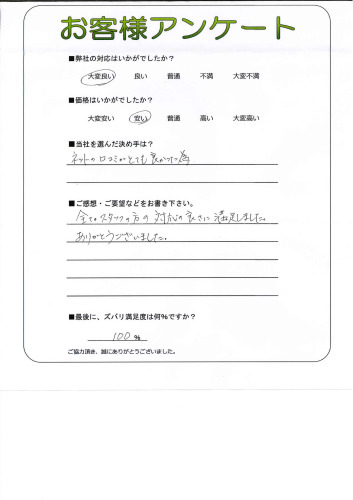 お客様アンケート
■弊社の対応はいかがでしたか？
大変良い 良い 普通 不満 大変不満
■価格はいかがでしたか？
大変安い 安い 普通 高い 大変高い
■当社を選んだ決め手は？
ネットの口コミがとても良かった為
■ご感想・ご要望などをお書き下さい。
全てのスタッフの方の対応の良さに満足しました。
ありがとうございました。
■最後に、ズバリ満足度は何％ですか？
100 ％
ご協力頂き、誠にありがとうございました。